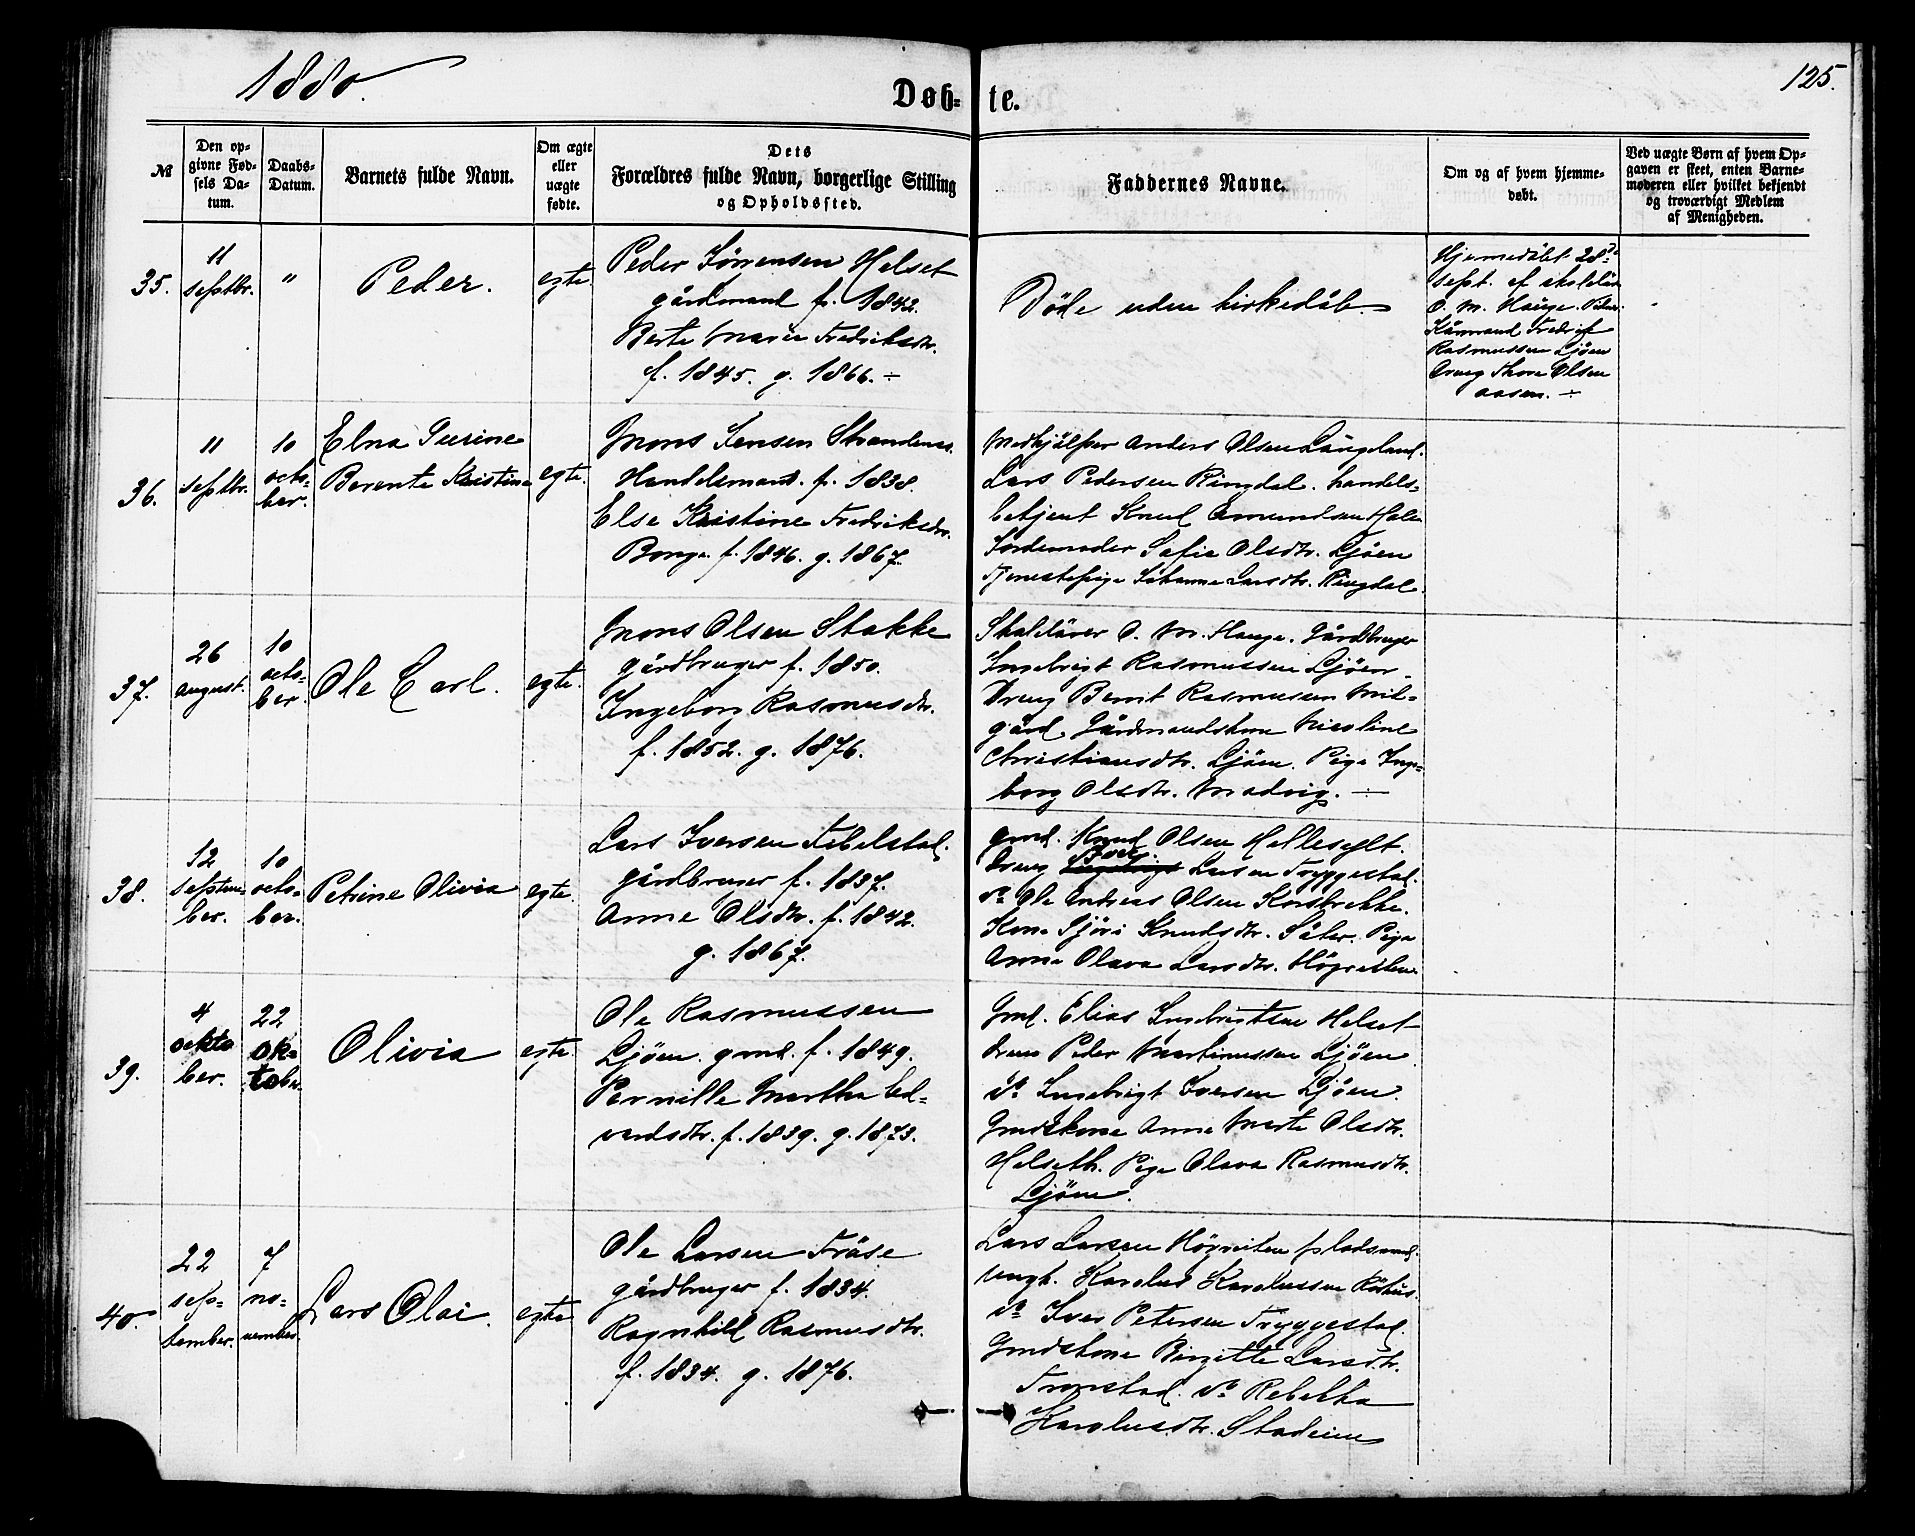 1880.
125.
Døb- te.
№
Den op-
givne Fød-
sels Da-
tum.
Daabs-
Datum.
Barnets fulde Navn.
Om ægte
eller
uægte
fødte.
Dets
Forældres fulde Navn, borgerlige Stilling
og Opholdssted.
Faddernes Navne.
Om og af hvem hjemme-
døbt.
Ved uægte Børn af hvem Op-
gaven er skeet, enten Barne-
moderen eller hvilket bekjendt
og troværdigt Medlem
af Menigheden.
35.
11
septbr.
"
Peder.
egte.
Peder Sörensen Helset
gårdmand f. 1842.
Berte Marie Fredriksdtr.
f. 1845. g. 1866. ÷
Döde uden kirkedåb.
Hjemmedöbt 28de
sept. af skolelär.
O. M. Hauge.
Kårmand Fredrik
Rasmussen Ljöen
Dreng Thore Olsen
aasen. ÷
36.
11
septbr.
10
octo-
ber.
Elna Severine
Berente Kristine
egte.
Mons Jensen Strandenes.
Handelsmand. f. 1838.
Else Kristine Fredriksdtr.
Bonge. f. 1846. g. 1867.
Medhjälper Anders Olsen Langeland.
Lars Pedersen Ringdal. handels-
betjent Knud Amundsen Hole
Jordemoder Sofie Olsdtr. Ljöen
Tjenestepige Johanne Larsdtr. Ringdal.
37.
26
august.
10
octo-
ber.
Ole Carl.
egte.
Mons Olsen Stakke
gårdbruger f. 1850.
Ingeborg Rasmusdtr.
f. 1852. g. 1876.
Skolelärer O. M. Hauge. Gårdbruger
Ingebrigt Rasmussen Ljöen.
Dreng Bernt Rasmussen Mel-
gård. Gårdmandskone Nicoline
Christiansdtr. Ljöen. Pige Inge-
borg Olsdtr. Madvig. ÷
38.
12
septem-
ber.
10
octo-
ber.
Petrine Olivia
egte.
Lars Iversen Fibelstad.
gårdbruger f. 1837.
Anne Olsdtr. f. 1842.
g. 1867.
gmd. Knud Olsen Hellesylt.
Dreng Larsen Tryggestad.
do Ole Andreas Olsen Korsbrekke.
Kone Sjöri Knudsdtr. Säter. Pige
Anne Olava Larsdtr. Högreiten
39.
4
oekto
ber.
22
ok-
tober
Olivia
egte.
Ole Rasmussen
Ljöen. gmd. f. 1849.
Pernille Martha Ed-
vardsdtr. f. 1839. g. 1873.
Gmd. Elias Ingebrigtsen Helset
dreng Peder Martinussen Ljöen
do Ingebrigt Iversen Ljöen.
Gmdskone Anne Marte Olsdtr.
Helseth. Pige Olava Rasmusdtr.
Ljöen.
40.
22
sep-
tember.
7
no-
vember
Lars Olai.
egte
Ole Larsen Fräse
gårdbruger f. 1834.
Ragnhild Rasmusdtr.
f. 1834. g. 1876.
Lars Larsen Högreiten pladsmd.
Ungk. Karolus Karolussen Röhus.
do Iver Petersen Tryggestad.
Gmdskone Birgitte Larsdtr.
Tronstad. do Rebekka
Karolusdtr. Stadeim